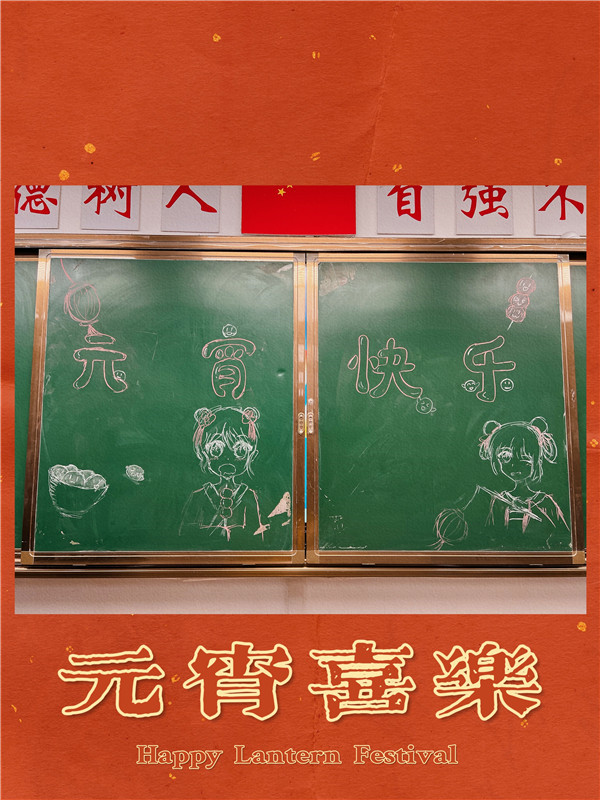 德树人 自强不
元宵 快乐
元宵喜樂
Happy Lantern Festival